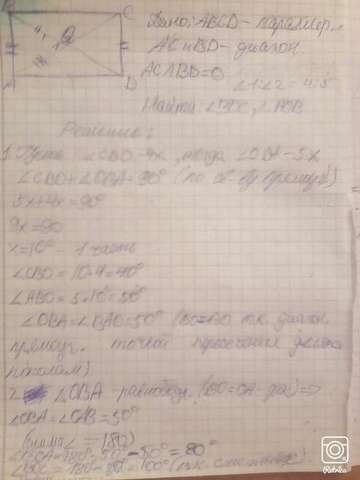 B C
Дано: ABCD - параллер.
AC и BD - диагон.
AC∩BD=O
∠1:∠2 = 4:5
A D
Найти ∠BOC, ∠AOB
Решение:
1. Пусть ∠CBO-4x, тогда ∠OBA-5x
∠CBO+∠OBA-90° (по св-ву прямоуг)
5x+4x=90°
9x=90
x=10° - 1 часть
∠OBO = 10·4=40°
∠ABO=5·10°=50°
∠OBA=∠BAO=50° (BO=AO т.к. диагон.
прямоуг. точкой пересечения делятся
пополам)
2. ∠OBA - равнобедр. (BO=OA - док)=>
∠OBA=∠OAB=50°
(сумма ∠=180)
∠BOA=180°-50°-50°=80°
∠BOC=180-80°=100° (т.к смежные)
Retrica